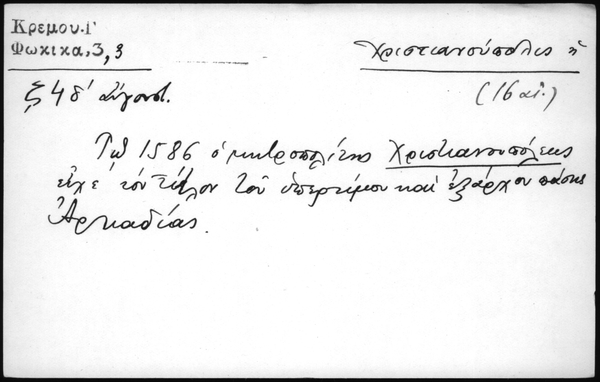 Κρεμου.Γ'
Φωκικα,3,3
Χριστιανούπολις ἡ
(16 αἰ.)
Τῷ 1586 ὁ μητροπολίτης Χριστιανουπόλεως
εἶχε τὸν τίτλον τοῦ ὑπερτίμου καὶ ἐξάρχου πάσης
Ἀρκαδίας.